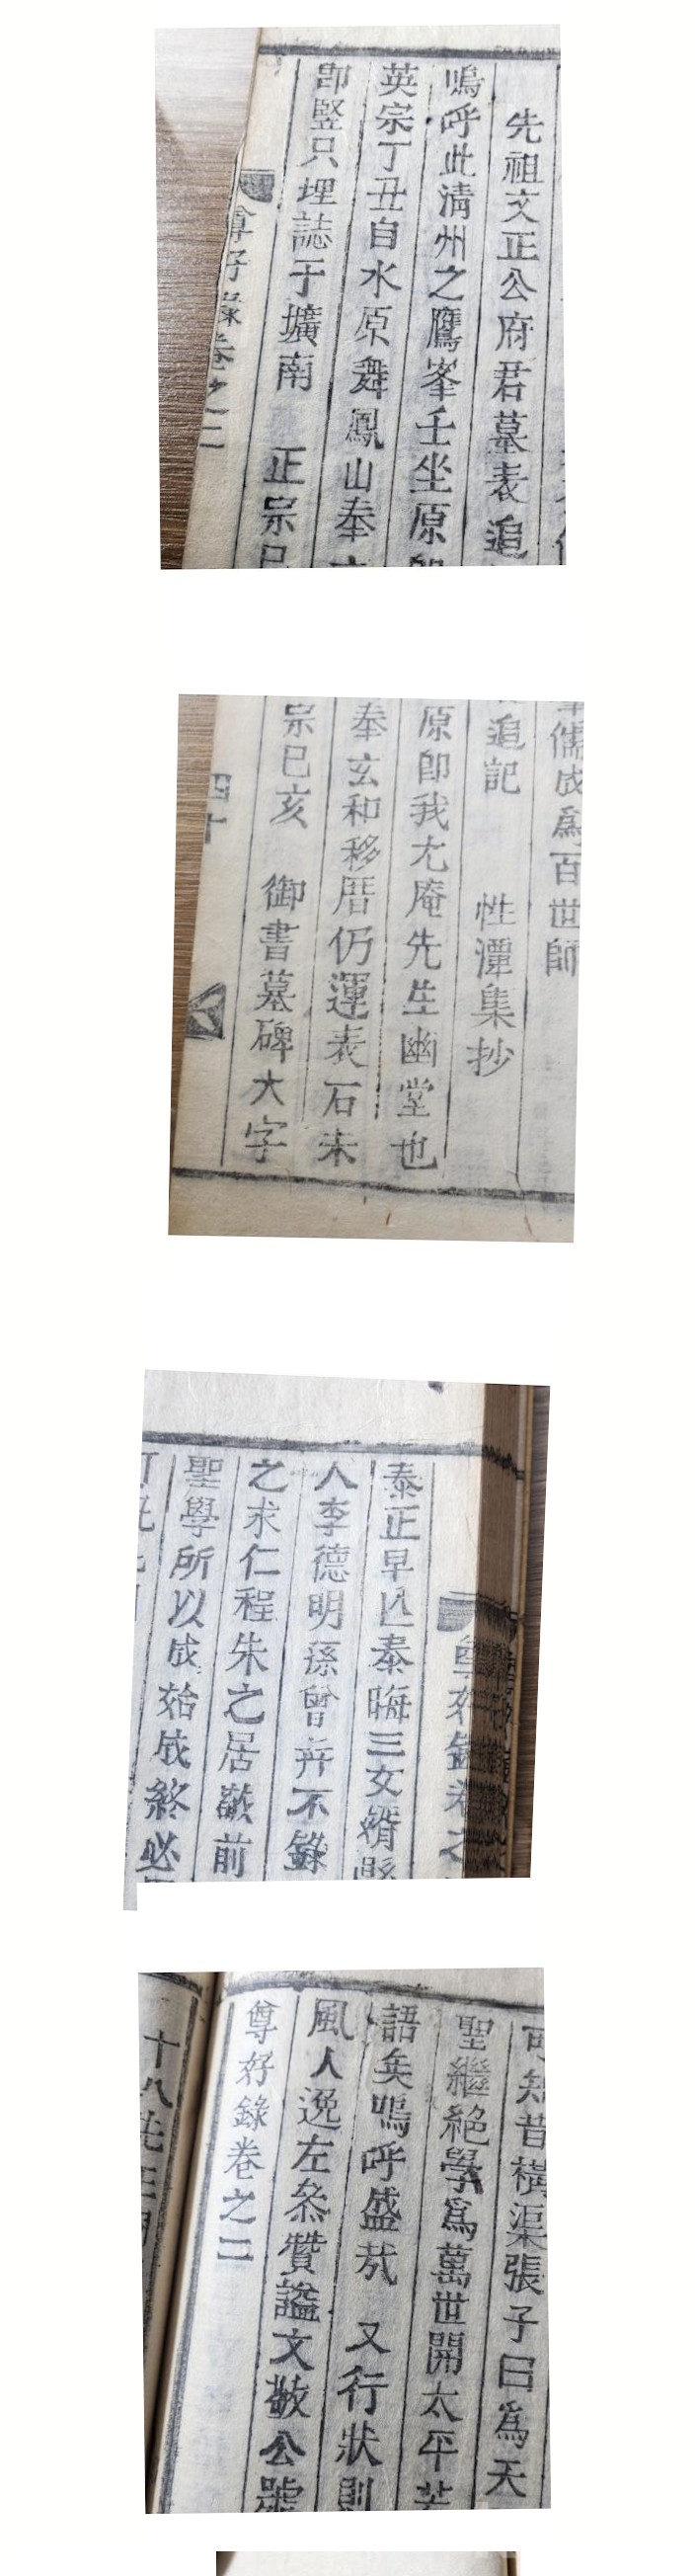 先祖文正公府君墓表追
嗚呼此淸州之鷹峯壬坐原
英宗丁丑自水原舞鳳山奉
卽竪只埋誌于壙南　正宗己
尊好錄卷之二
儒成爲百世師
追記　性潭集抄
原卽我尤庵先生幽堂也
奉玄和移厝仍運表石未
宗己亥　御書墓碑大字
四十
尊好錄卷之
泰正早亡泰晦三女婿
人李德明孫曾幷不錄
之求仁程朱之居敬前
聖學所以成始成終必
可知昔橫渠張子曰爲天
聖繼絶學爲萬世開太平
語矣嗚呼盛哉　又行狀則
風人逸左叅贊謚文敬公號
尊好錄卷之二
十八